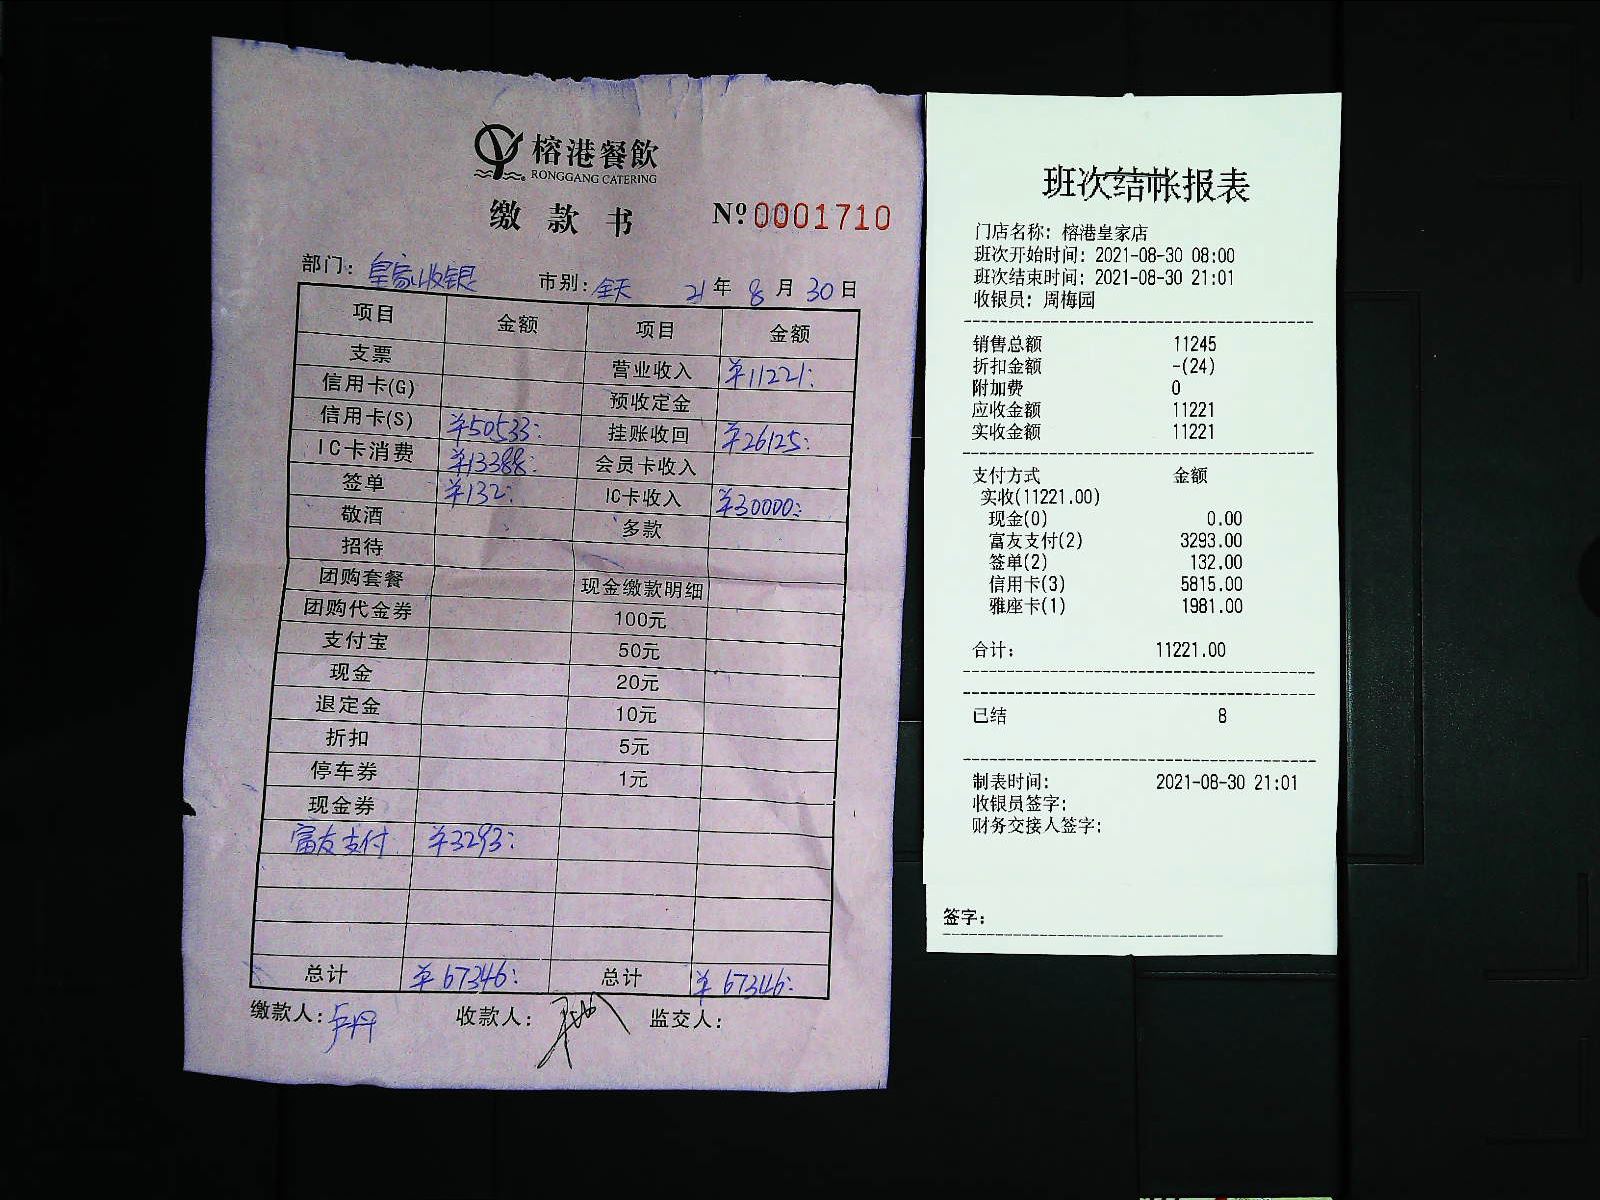 榕港餐飲
RONGGANG CATERING
缴款书
№0001710
部门：皇家收银 市别：全天 21年8月30日
项目 金额 项目 金额
支票 营业收入 ¥11221:
信用卡(G) 预收定金
信用卡(S) ¥50533: 挂账收回 ¥26125:
IC卡消费 ¥13388: 会员卡收入
签单 ¥132: IC卡收入 ¥30000:
敬酒 多款
招待
团购套餐 现金缴款明细
团购代金券 100元
支付宝 50元
现金 20元
退定金 10元
折扣 5元
停车券 1元
现金券
富友支付 ¥3293:
总计 ¥67346: 总计 ¥67346:
缴款人：卢丹 收款人： 监交人：
班次结帐报表
门店名称：榕港皇家店
班次开始时间：2021-08-30 08:00
班次结束时间：2021-08-30 21:01
收银员：周梅园
销售总额 11245
折扣金额 -(24)
附加费 0
应收金额 11221
实收金额 11221
支付方式 金额
实收(11221.00)
现金(0) 0.00
富友支付(2) 3293.00
签单(2) 132.00
信用卡(3) 5815.00
雅座卡(1) 1981.00
合计： 11221.00
已结 8
制表时间： 2021-08-30 21:01
收银员签字：
财务交接人签字：
签字：